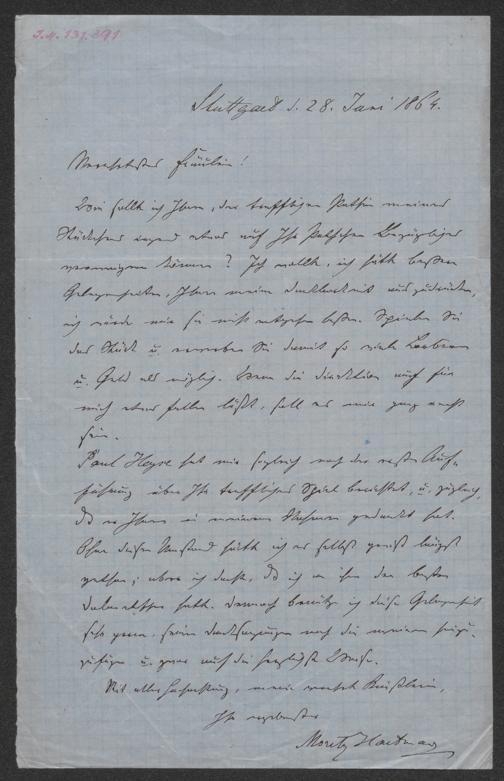 I.N. 131.391
Stuttgart d. 28. Juni 1864.
Verehrtes Fräulein!
Wie sollt ich Ihnen, der trefflichen Pathin meines
Stückchens irgend etwas auf Ihr Bezügliches
verweigern können? Ich wollte, ich hätte bessere
Gelegenheiten, Ihnen meine Dankbarkeit auszudrücken,
ich würde mir sie nicht entgehen lassen. Spielen Sie
das Stück u. erwerben Sie damit so viele Lorbeeren
u. Geld als möglich. Wenn die Direktion auch für
mich etwas fallen läßt, soll es mir ganz recht
sein.
Paul Heyse hat mir sogleich nach der ersten Auf-
führung über Ihr treffliches Spiel berichtet, u. zugleich,
daß er Ihnen in meinem Namen gedankt hat.
Ohne diesen Umstand hätt ich es selbst gewiß längst
gethan; aber ich dachte, daß ich an ihm den besten
Dolmetscher hatte. Dennoch benütze ich diese Gelegenheit
sehr gern, seinen Danksagungen noch die meinen hinzu-
zufügen u. zwar auf die herzlichste Weise.
Mit aller Hochachtung, mein verehrtes Fräulein,
Ihr ergebenster
Moritz Hartmann